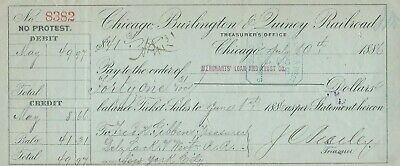 No. 8382
NO PROTEST.
DEBIT
May 49.97
Total
CREDIT
May 8.66
Baly 41.31
Total 49.97
Chicago Burlington & Quincy Railroad
TREASURER'S OFFICE
Chicago July 10th 1886
Pay to the order of
MERCHANTS' LOAN AND TRUST CO.
Forty one Dollars
balance Ticket Sales to June 1st 1886 as per Statement hereon
To Fred H. Gibbens Treasurer
Del. Lack. & West.
New York City
Treasurer